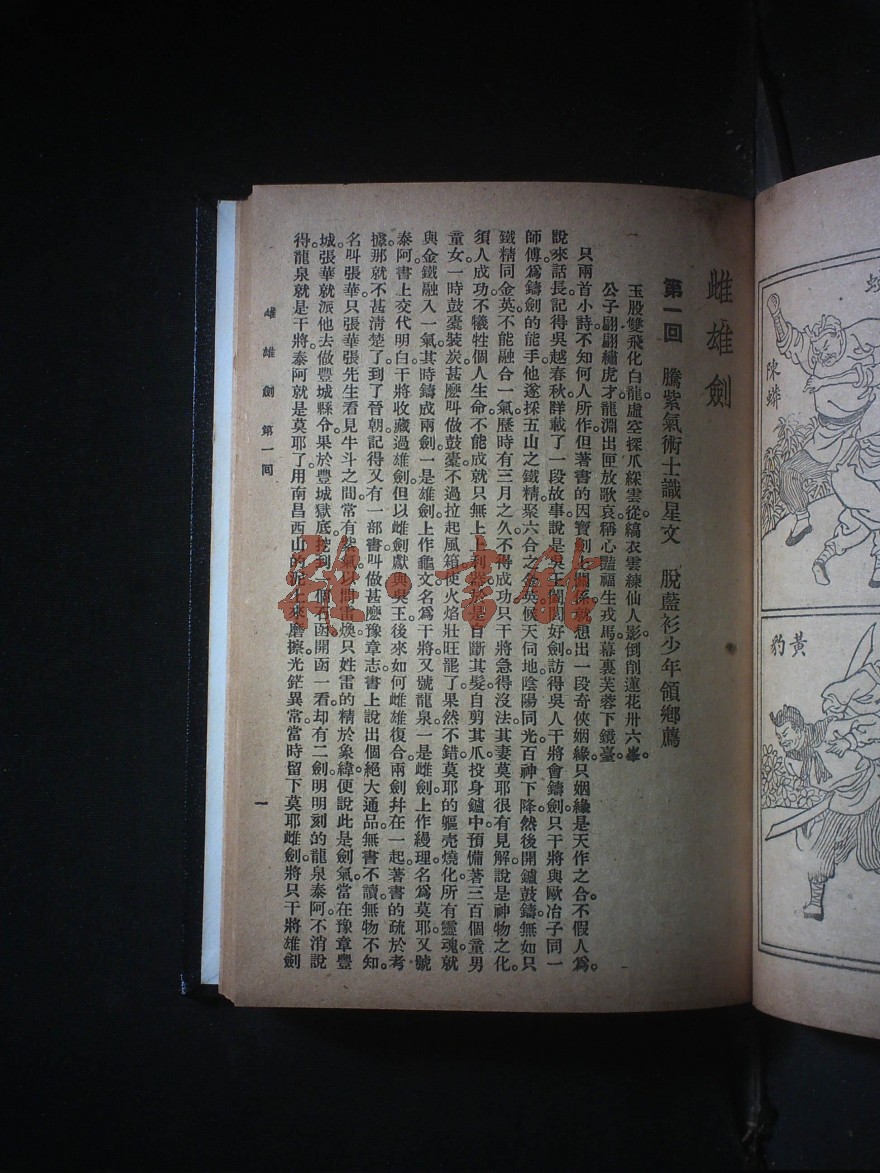 蛟
陳蟒
黃豹
雌雄劍
第一回　騰紫氣術士識星文　脫藍衫少年領鄉薦
玉股雙飛化白龍。虛空探爪綵雲從。縞衣雲練仙人影。倒削蓮花卅六峯。
公子翩翩繡虎才。龍淵出匣放歌哀。稱心豔福生戎馬。幕裏芙蓉下鏡臺。
只兩首小詩。不知何人所作。但著書的因寶劍上關係。就想出一段奇俠姻緣。只姻緣是天作之合。不假人為。
說來話長。記得吳越春秋。詳載了一段故事。說是吳王闔閭好劍。訪得吳人干將會鑄劍。只干將與歐冶子同一
師傅。為鑄劍的能手。他遂採五山之鐵精。聚六合之金英。候天伺地。陰陽同光。百神下降。然後開鑪鼓鑄。無如只
鐵精同金英。不能融合一氣。歷時有三月之久。不得成功。只干將急得沒法。其妻莫耶很有見解。說是神物之化。
須人成功。不犧牲個人生命。不能成就只無上上利器。於是自斷其髮。自剪其爪。投身鑪中。預備著三百個童男
童女。一時鼓橐裝炭。甚麼叫做鼓橐。不過拉起風箱。使火焰壯旺罷了。果然不錯。莫耶的軀壳燒化。所有靈魂就
與金鐵融入一氣。其時鑄成兩劍。一是雄劍。上作龜文。名為干將。又號龍泉。一是雌劍。上作縵理。名為莫耶。又號
泰阿。書上交代明白。干將收藏過雄劍。但以雌劍獻與吳王。後來如何雌雄復合。兩劍并在一起。著書的疏於考
據。那就不甚清楚了。到了晉朝。記得又有一部書。叫做甚麼豫章志。書上說出個絕大通品。無書不讀。無物不知。
名叫張華。只張華張先生看見牛斗之間。常有紫氣。以問雷煥。只姓雷的精於象緯。便說此是劍氣。當在豫章豐
城。張華就派他去做豐城縣令。果於豐城獄底。挖到一個石函。開函一看。却有二劍。明明刻的龍泉泰阿。不消說
得。龍泉就是干將。泰阿就是莫耶了。用南昌西山的泥土來磨擦。光鋩異常。當時留下莫耶雌劍。將只干將雄劍
雌雄劍　第一回
一